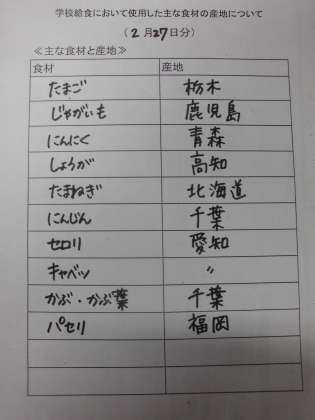 学校給食において使用した主な食材の産地について
(2月27日分)
≪主な食材と産地≫
食材 産地
たまご 栃木
じゃがいも 鹿児島
にんにく 青森
しょうが 高知
たまねぎ 北海道
にんじん 千葉
セロリ 愛知
キャベツ 〃
かぶ・かぶ葉 千葉
パセリ 福岡